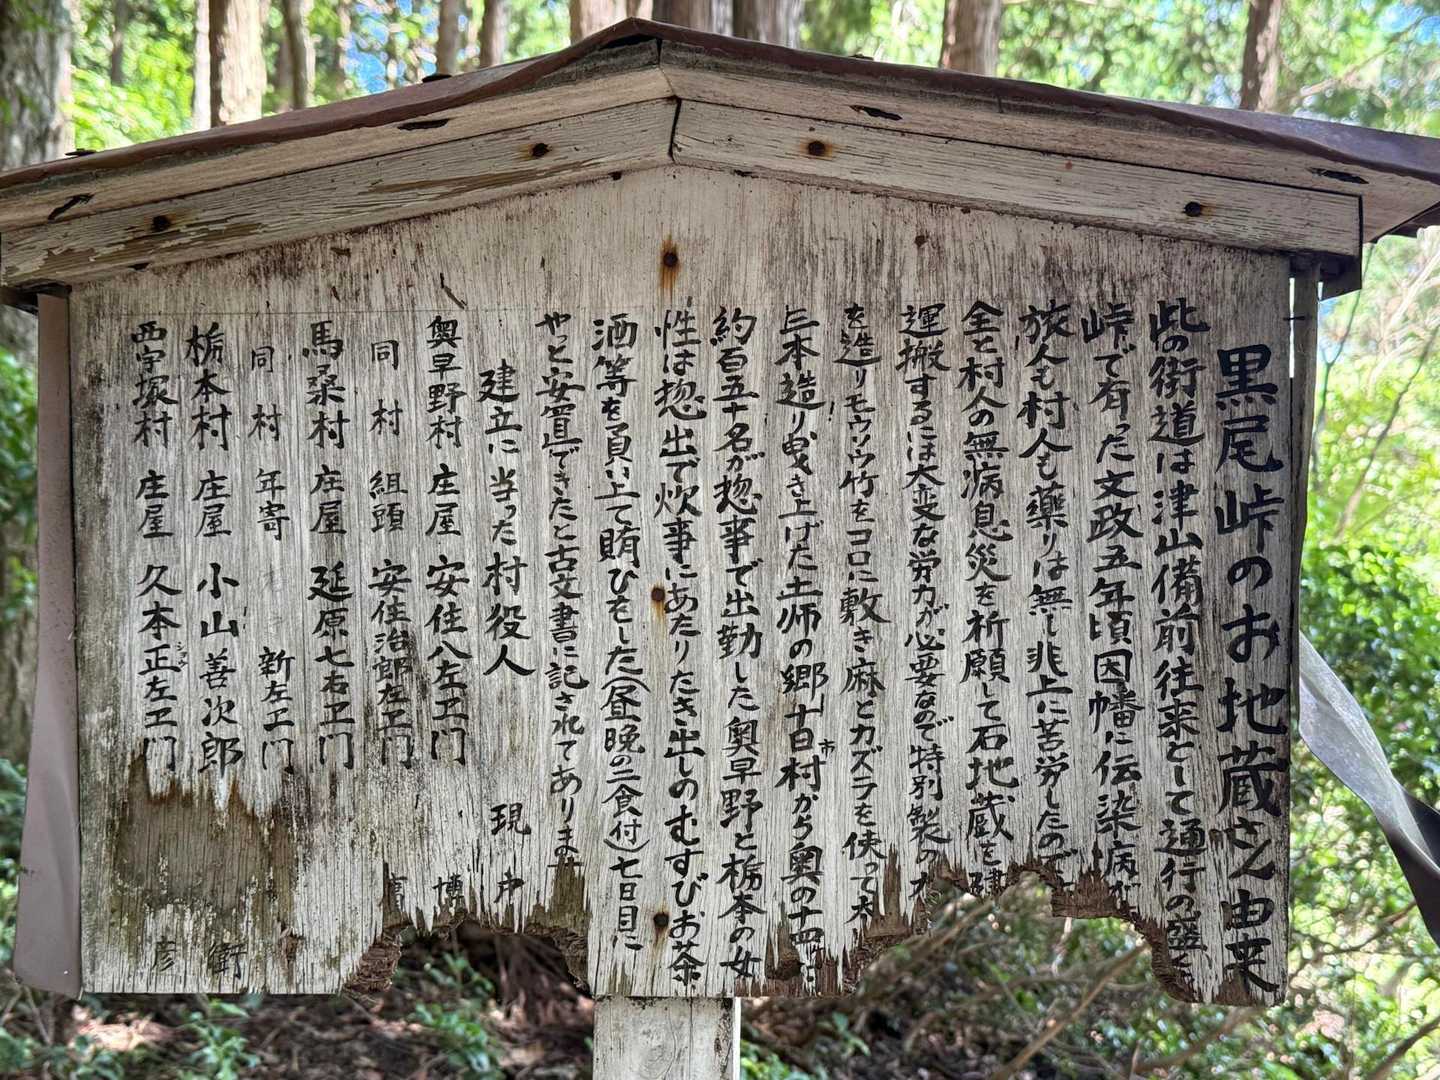 黒尾峠のお地蔵さん由来
此の街道は津山備前往来として通行の盛
峠で有った文政五年頃因幡に伝染病が
旅人も村人も薬りは無し非上に苦労したので
全と村人の無病息災を祈願して石地蔵を建
運搬するには大変な労力が必要なので特別製の木
を造りモウソウ竹をコロに敷き麻とカズラを使って大
三本造り曳き上げた土师の郷十日市村から奥の十四
約百五十名が惣事で出勤した奥早野と栃本の女
性は惣出で炊事にあたりたき出しのむすびお茶
酒等を負い上て賄ひをした(昼晩の二食付)七日目に
やっと安置できたと古文書に記されてありま
建立に当った村役人 現戸
奥早野村 庄屋 安住八左ヱ門 博
同村 組頭 安住治郎左ヱ門
馬桑村 庄屋 延原七右ヱ門
同村 年寄 新左ヱ門
栃本村 庄屋 小山善次郎 衛
西宇塚村 庄屋 久本正左ヱ門 彦